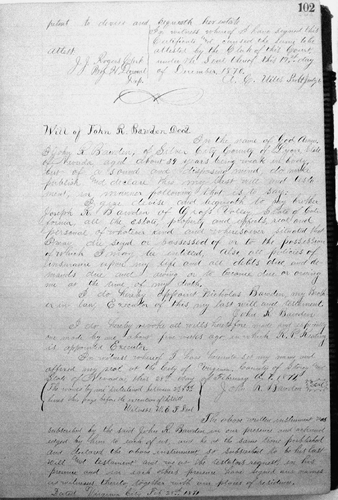 102
patent to devise and bequeath her estate
In witness whereof I have signed this
Certificate and caused the same to be
Attest attested by the Clerk of this Court
J. J. Rogers Clerk under the Seal thereof this 17th day
of December 1870.
Will of John R. Bawden Decd
In the name of God Amen
I John R. Bawden of Silver City County of State
of Nevada aged about 29 years being weak in body
but of a sound and disposing mind, do make
publish and declare this my last will and testa
ment, in manner following that is to say:
I give devise and bequeath to my brother
Joseph R. Bawden of Grass Valley State of Cali
fornia all the estate, property and effects real and
personal of whatever kind and wheresoever situated that
I may die seized or possessed of or to the possession
of which I may be entitled. Also all policies of
insurance upon my life and all debts due and de
mands due and owing or to become due or owing
me at the time of my death.
I do hereby appoint Nicholas Bawden, my broth
er in law, Executor of this my last will and testament.
John R. Bawden
I do hereby revoke all wills heretofore made
me made by me about five weeks ago in which
is appointed Executor.
In witness whereof I have hereunto set my hand and
affixed my seal at the City of Virginia, County of Storey and
State of Nevada this 28th day of February A.D. 1871.
John R. Bawden
The above written instrument was
subscribed by the said John R. Bawden in our presence and acknowl
edged by him to each of us, and he at the same time published
and declared the above instrument so subscribed to be his last
will and testament and we at the testators request, in his
presence and in each others presence have signed our names
as witnesses thereto together with our places of residence.
Dated Virginia City Feb 28th 1871